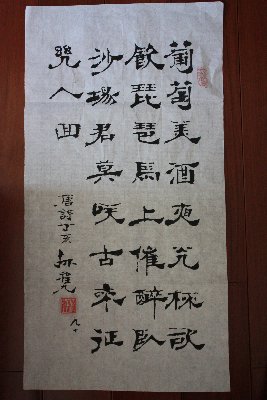 葡萄美酒夜光杯欲
飲琵琶馬上催醉臥
沙場君莫咲古来征
人回
唐詩丁亥
九十